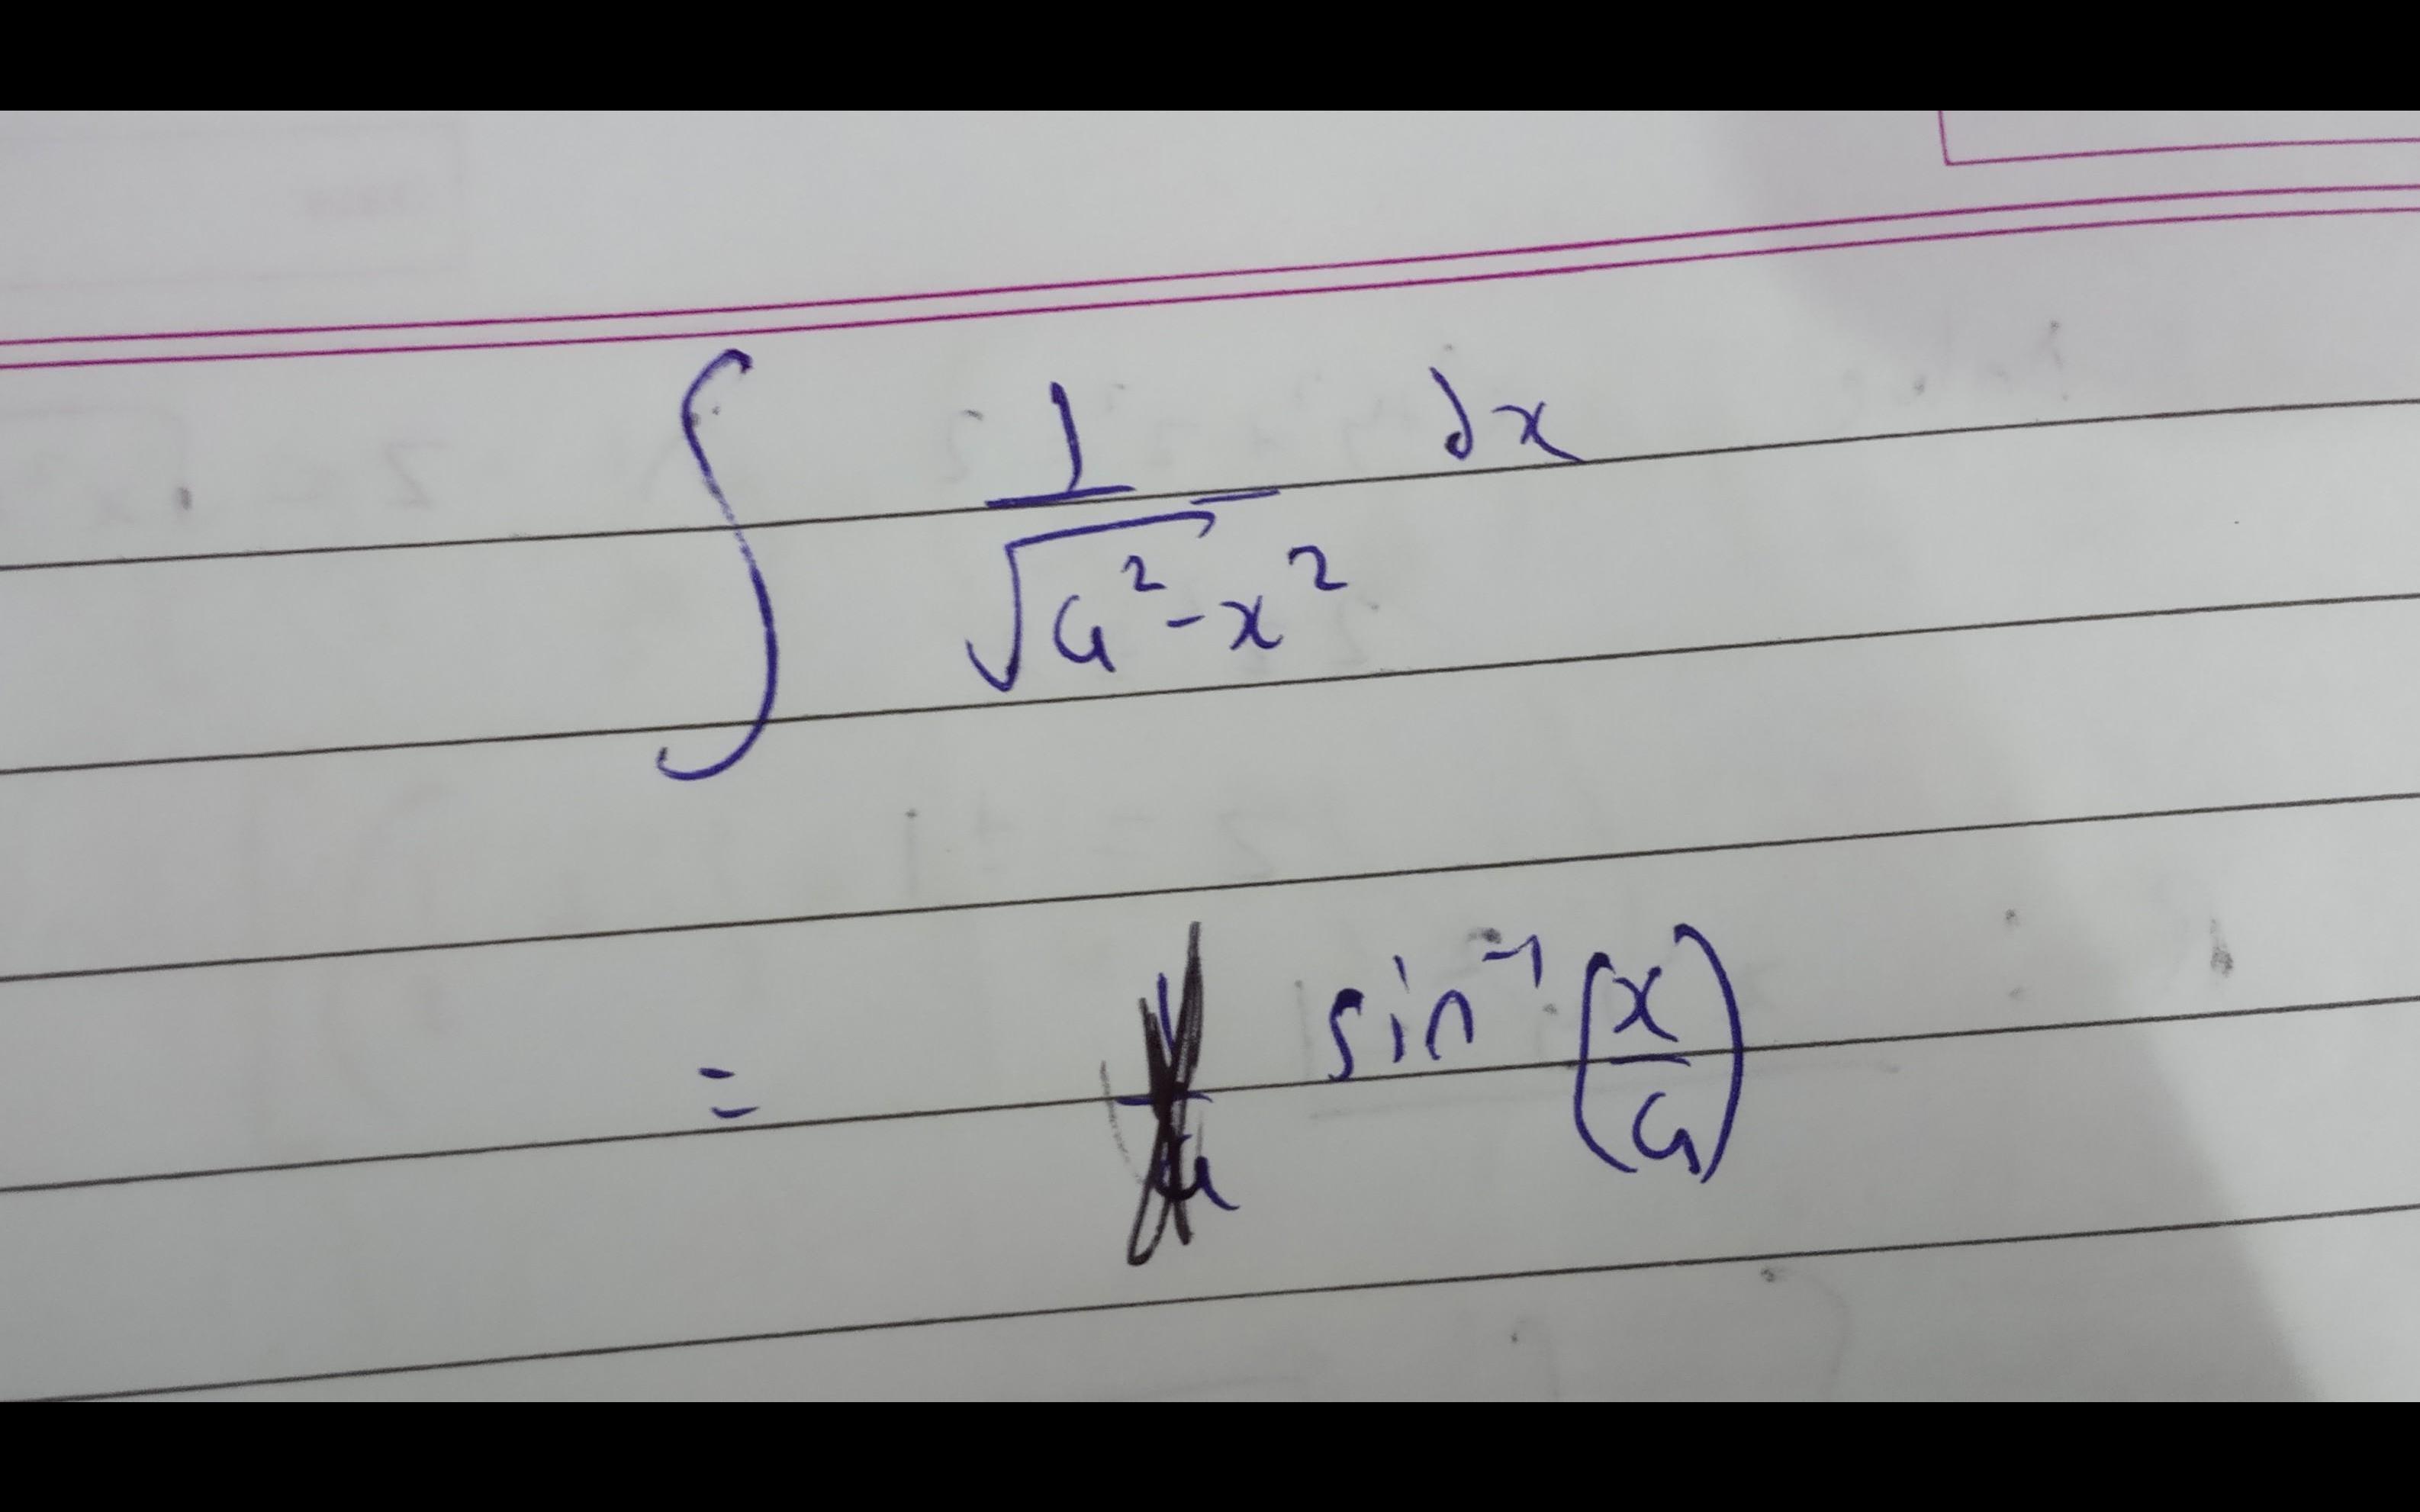 ∫ 1/√(a²-x²) dx
= sin⁻¹(x/a)